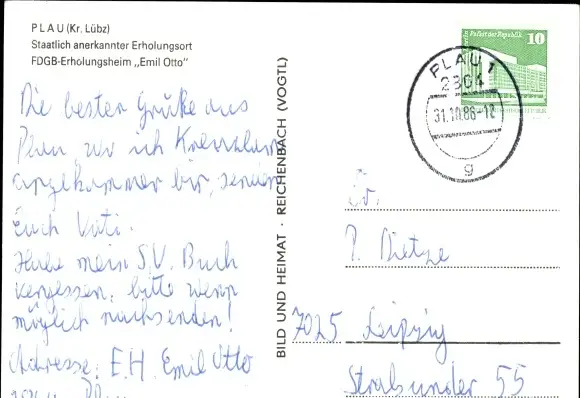 PLAU (Kr. Lübz)
Staatlich anerkannter Erholungsort
FDGB-Erholungsheim „Emil Otto"
Die besten Grüße aus
Plau, wo ich
angekommen bin, senden
Euch Vati.
Habe mein S.V. Buch
vergessen, bitte wenn
möglich nachsenden!
Adresse: E.H. Emil Otto
BILD UND HEIMAT · REICHENBACH (VOGTL)
Berlin Palast der Republik 10
PLAU 1
2864
31.10.86-12
g
P. Dietze
7025 Leipzig
Stralsunder 55